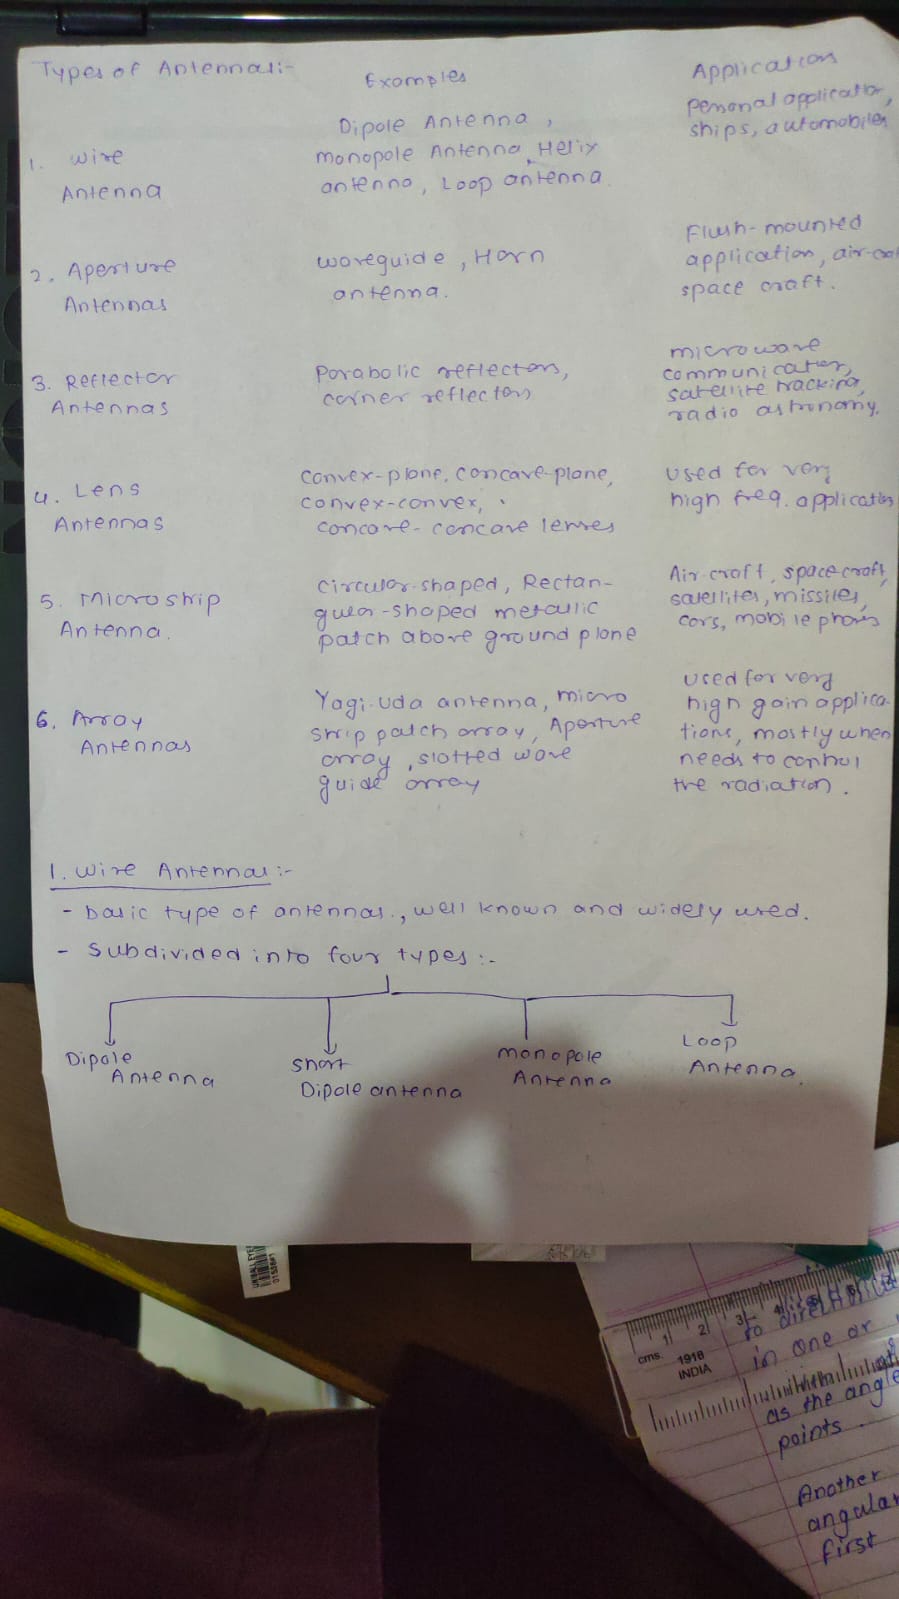 Types of Antennas:-
Examples
Application
1. Wire
Antenna
Dipole Antenna,
monopole Antenna, Helix
antenna, Loop antenna
personal application,
ships, automobiles
2. Aperture
Antennas
waveguide, Horn
antenna.
Flush-mounted
application, air-
space craft.
3. Reflector
Antennas
Parabolic reflectors,
corner reflectors
microwave
communication,
satellite tracking,
radio astronomy.
4. Lens
Antennas
Convex-plane, concave-plane,
convex-convex,
concave-concave lenses
Used for very
high freq. application
5. Microstrip
Antenna.
Circular-shaped, Rectan-
gular-shaped metallic
patch above ground plane
Air-craft, space craft,
satellites, missiles,
cars, mobile phones
6. Array
Antennas
Yagi-Uda antenna, micro
strip patch array, Aperture
array, slotted wave
guide array
Used for very
high gain applica-
tions, mostly when
needs to control
the radiation.
1. Wire Antennas:-
- basic type of antennas., well known and widely used.
- Subdivided into four types:-
Dipole
Antenna
Short
Dipole antenna
monopole
Antenna
Loop
Antenna.
cms.
1 2 3
1918
INDIA
to directional
in one or
as the angle
points.
Another
angular
first